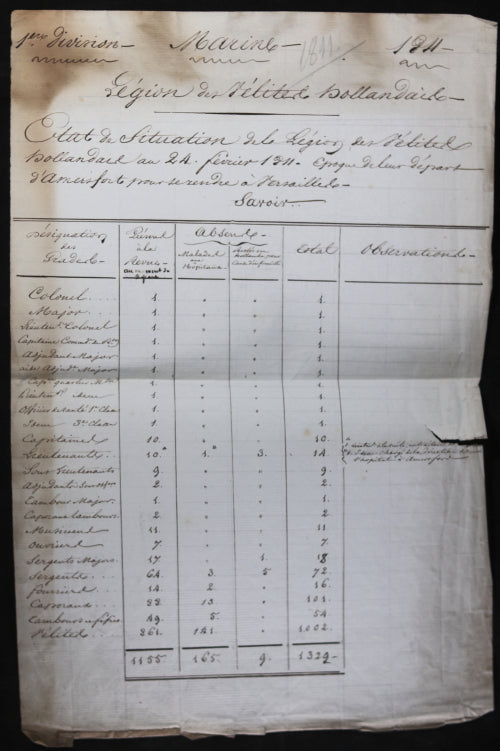 1ere Division Marine 1811. 1811
Légion des Vélites hollandais
Etat de Situation de la Légion des Vélites
hollandais au 24. février 1811 Epoque de leur départ
d'Amersfort pour se rendre à Versailles
Savoir
Désignation des Grades Présens à la Revue Absens Malades aux hôpitaux Total Observations
Colonel 1. " " 1.
Major 1. " " 1.
Lieutent Colonel 1. " " 1.
Capitaine 1. " " 1.
Adjudant Major 1. " " 1.
aide Adjudt Major 1. " " 1.
Capne quartier Mtre 1. " " 1.
Lieutent Idem 1. " " 1.
Officier de santé 1e Classe 1. " " 1.
Idem 3e Classe 1. " " 1.
Capitaines 10. " " 10.
Lieutenants 10. 1. 3. 14.
Sous Lieutenants 9. " " 9.
Adjudants Sous offer 2. " " 2.
Tambour Major 1. " " 1.
Caporaux tambours 2. " " 2
Musiciens 11. " " 11
ouvriers 7. " " 7.
Sergents Majors 17. " 1. 18
Sergents 64. 3. 5 72.
fourriers 14. 2. " 16.
Caporaux 88. 13 " 101.
Tambours et fifres 49. 5. " 54.
Vélites 861. 141. " 1002.
1155. 165. 9. 1329.